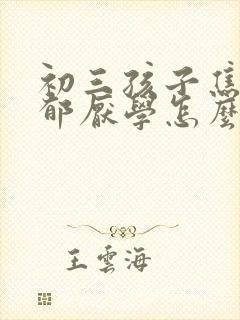 初三孩子焦
郁厭學怎麼
王雲海